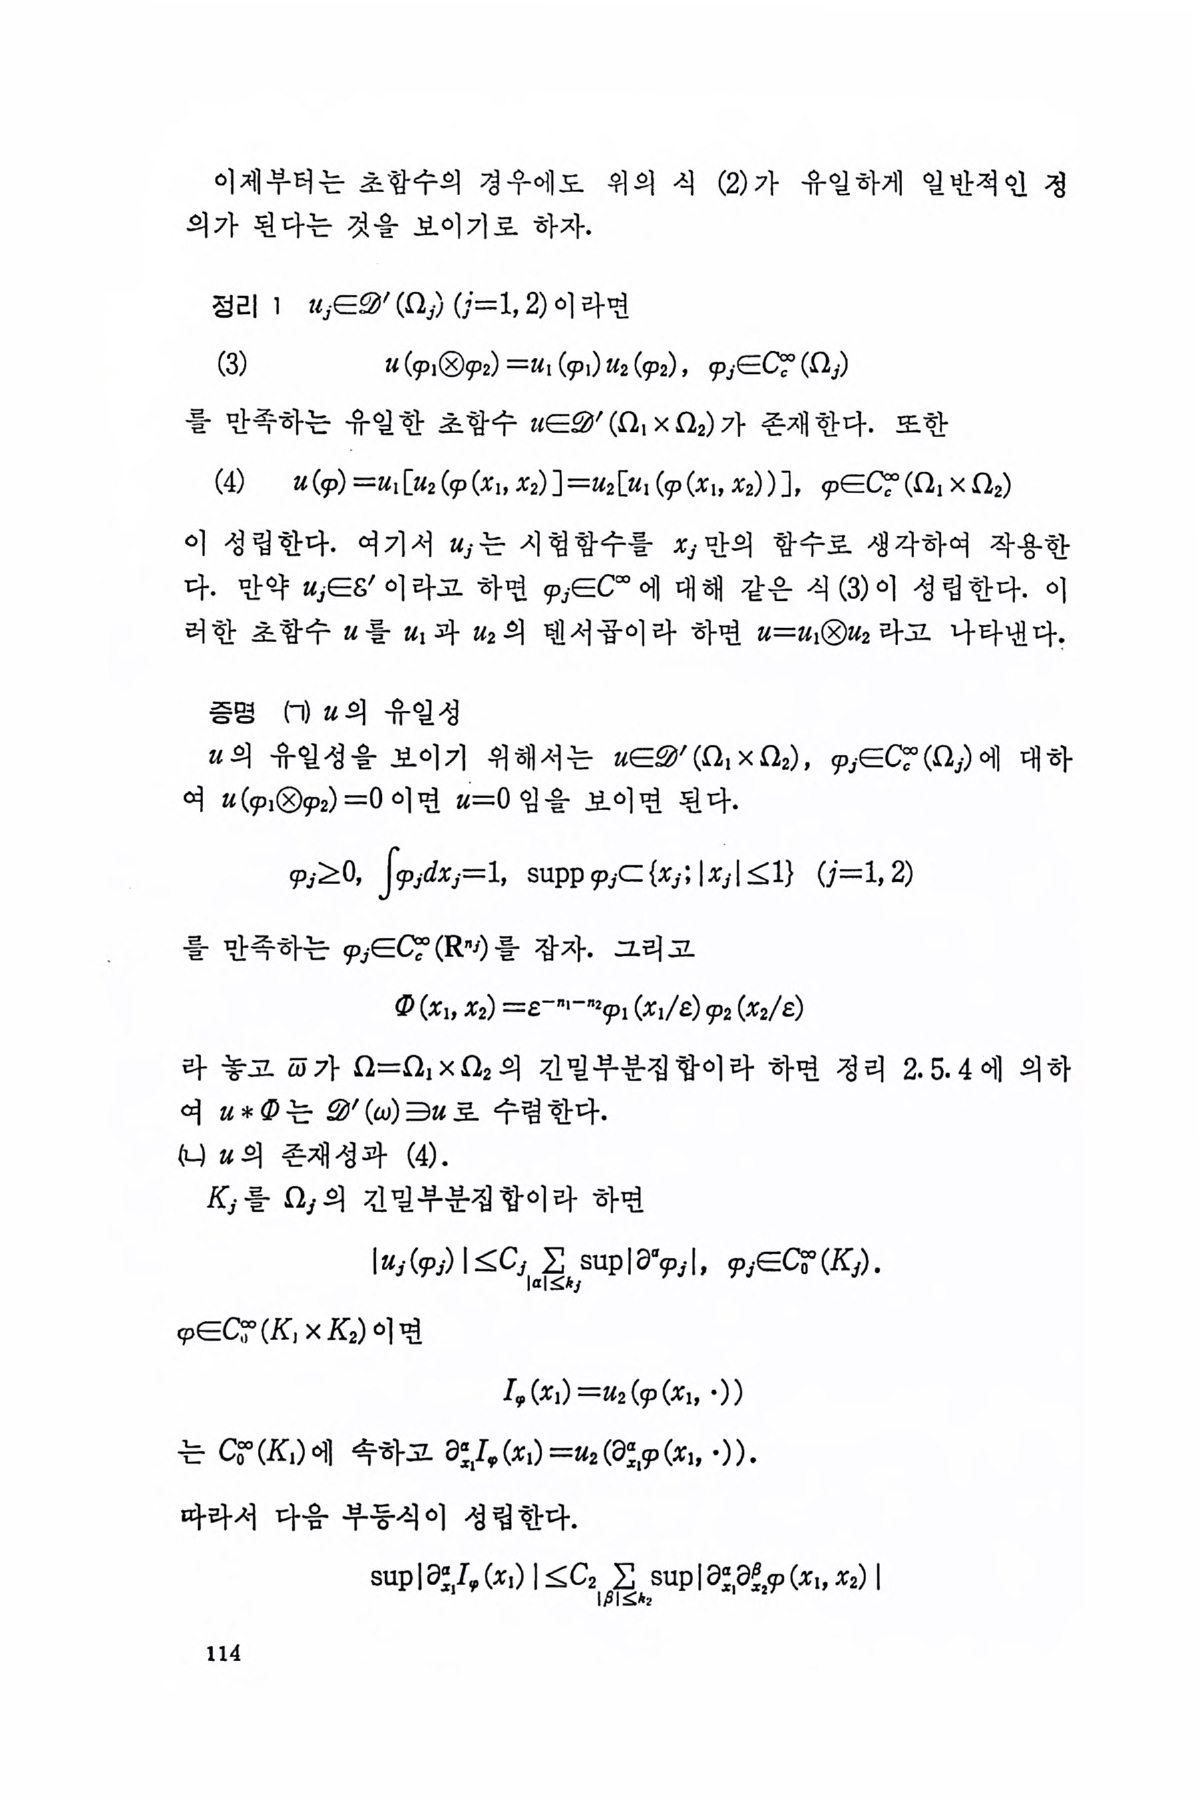 이제부터는 초함수의 경우에도 위의 식 (2)가 유일하게 일반적인 정
의가 된다는 것을 보이기로 하자.
정리 1 u_j∈𝒟′(Ω_j) (j=1, 2)이라면
(3) u(φ₁⊗φ₂)=u₁(φ₁)u₂(φ₂), φ_j∈C_c^∞(Ω_j)
를 만족하는 유일한 초함수 u∈𝒟′(Ω₁×Ω₂)가 존재한다. 또한
(4) u(φ)=u₁[u₂(φ(x₁, x₂)]=u₂[u₁(φ(x₁, x₂))], φ∈C_c^∞(Ω₁×Ω₂)
이 성립한다. 여기서 u_j는 시험함수를 x_j만의 함수로 생각하여 작용한
다. 만약 u_j∈ℰ′이라고 하면 φ_j∈C^∞에 대해 같은 식(3)이 성립한다. 이
러한 초함수 u를 u₁과 u₂의 텐서곱이라 하면 u=u₁⊗u₂라고 나타낸다.
증명 (ㄱ) u의 유일성
u의 유일성을 보이기 위해서는 u∈𝒟′(Ω₁×Ω₂), φ_j∈C_c^∞(Ω_j)에 대하
여 u(φ₁⊗φ₂)=0이면 u=0임을 보이면 된다.
φ_j≥0, ∫φ_jdx_j=1, supp φ_j⊂{x_j; |x_j|≤1} (j=1, 2)
를 만족하는 φ_j∈C_c^∞(R^{n_j})를 잡자. 그리고
Φ(x₁, x₂)=ε^{-n₁-n₂}φ₁(x₁/ε)φ₂(x₂/ε)
라 놓고 ω̅가 Ω=Ω₁×Ω₂의 긴밀부분집합이라 하면 정리 2.5.4에 의하
여 u*Φ는 𝒟′(ω)∋u로 수렴한다.
(ㄴ) u의 존재성과 (4).
K_j를 Ω_j의 긴밀부분집합이라 하면
|u_j(φ_j)|≤C_j ∑_{|α|≤k_j} sup|∂^αφ_j|, φ_j∈C_0^∞(K_j).
φ∈C_0^∞(K₁×K₂)이면
I_φ(x₁)=u₂(φ(x₁, ·))
는 C_0^∞(K₁)에 속하고 ∂_{x₁}^αI_φ(x₁)=u₂(∂_{x₁}^αφ(x₁, ·)).
따라서 다음 부등식이 성립한다.
sup|∂_{x₁}^αI_φ(x₁)|≤C₂ ∑_{|β|≤k₂} sup|∂_{x₁}^α∂_{x₂}^βφ(x₁, x₂)|
114